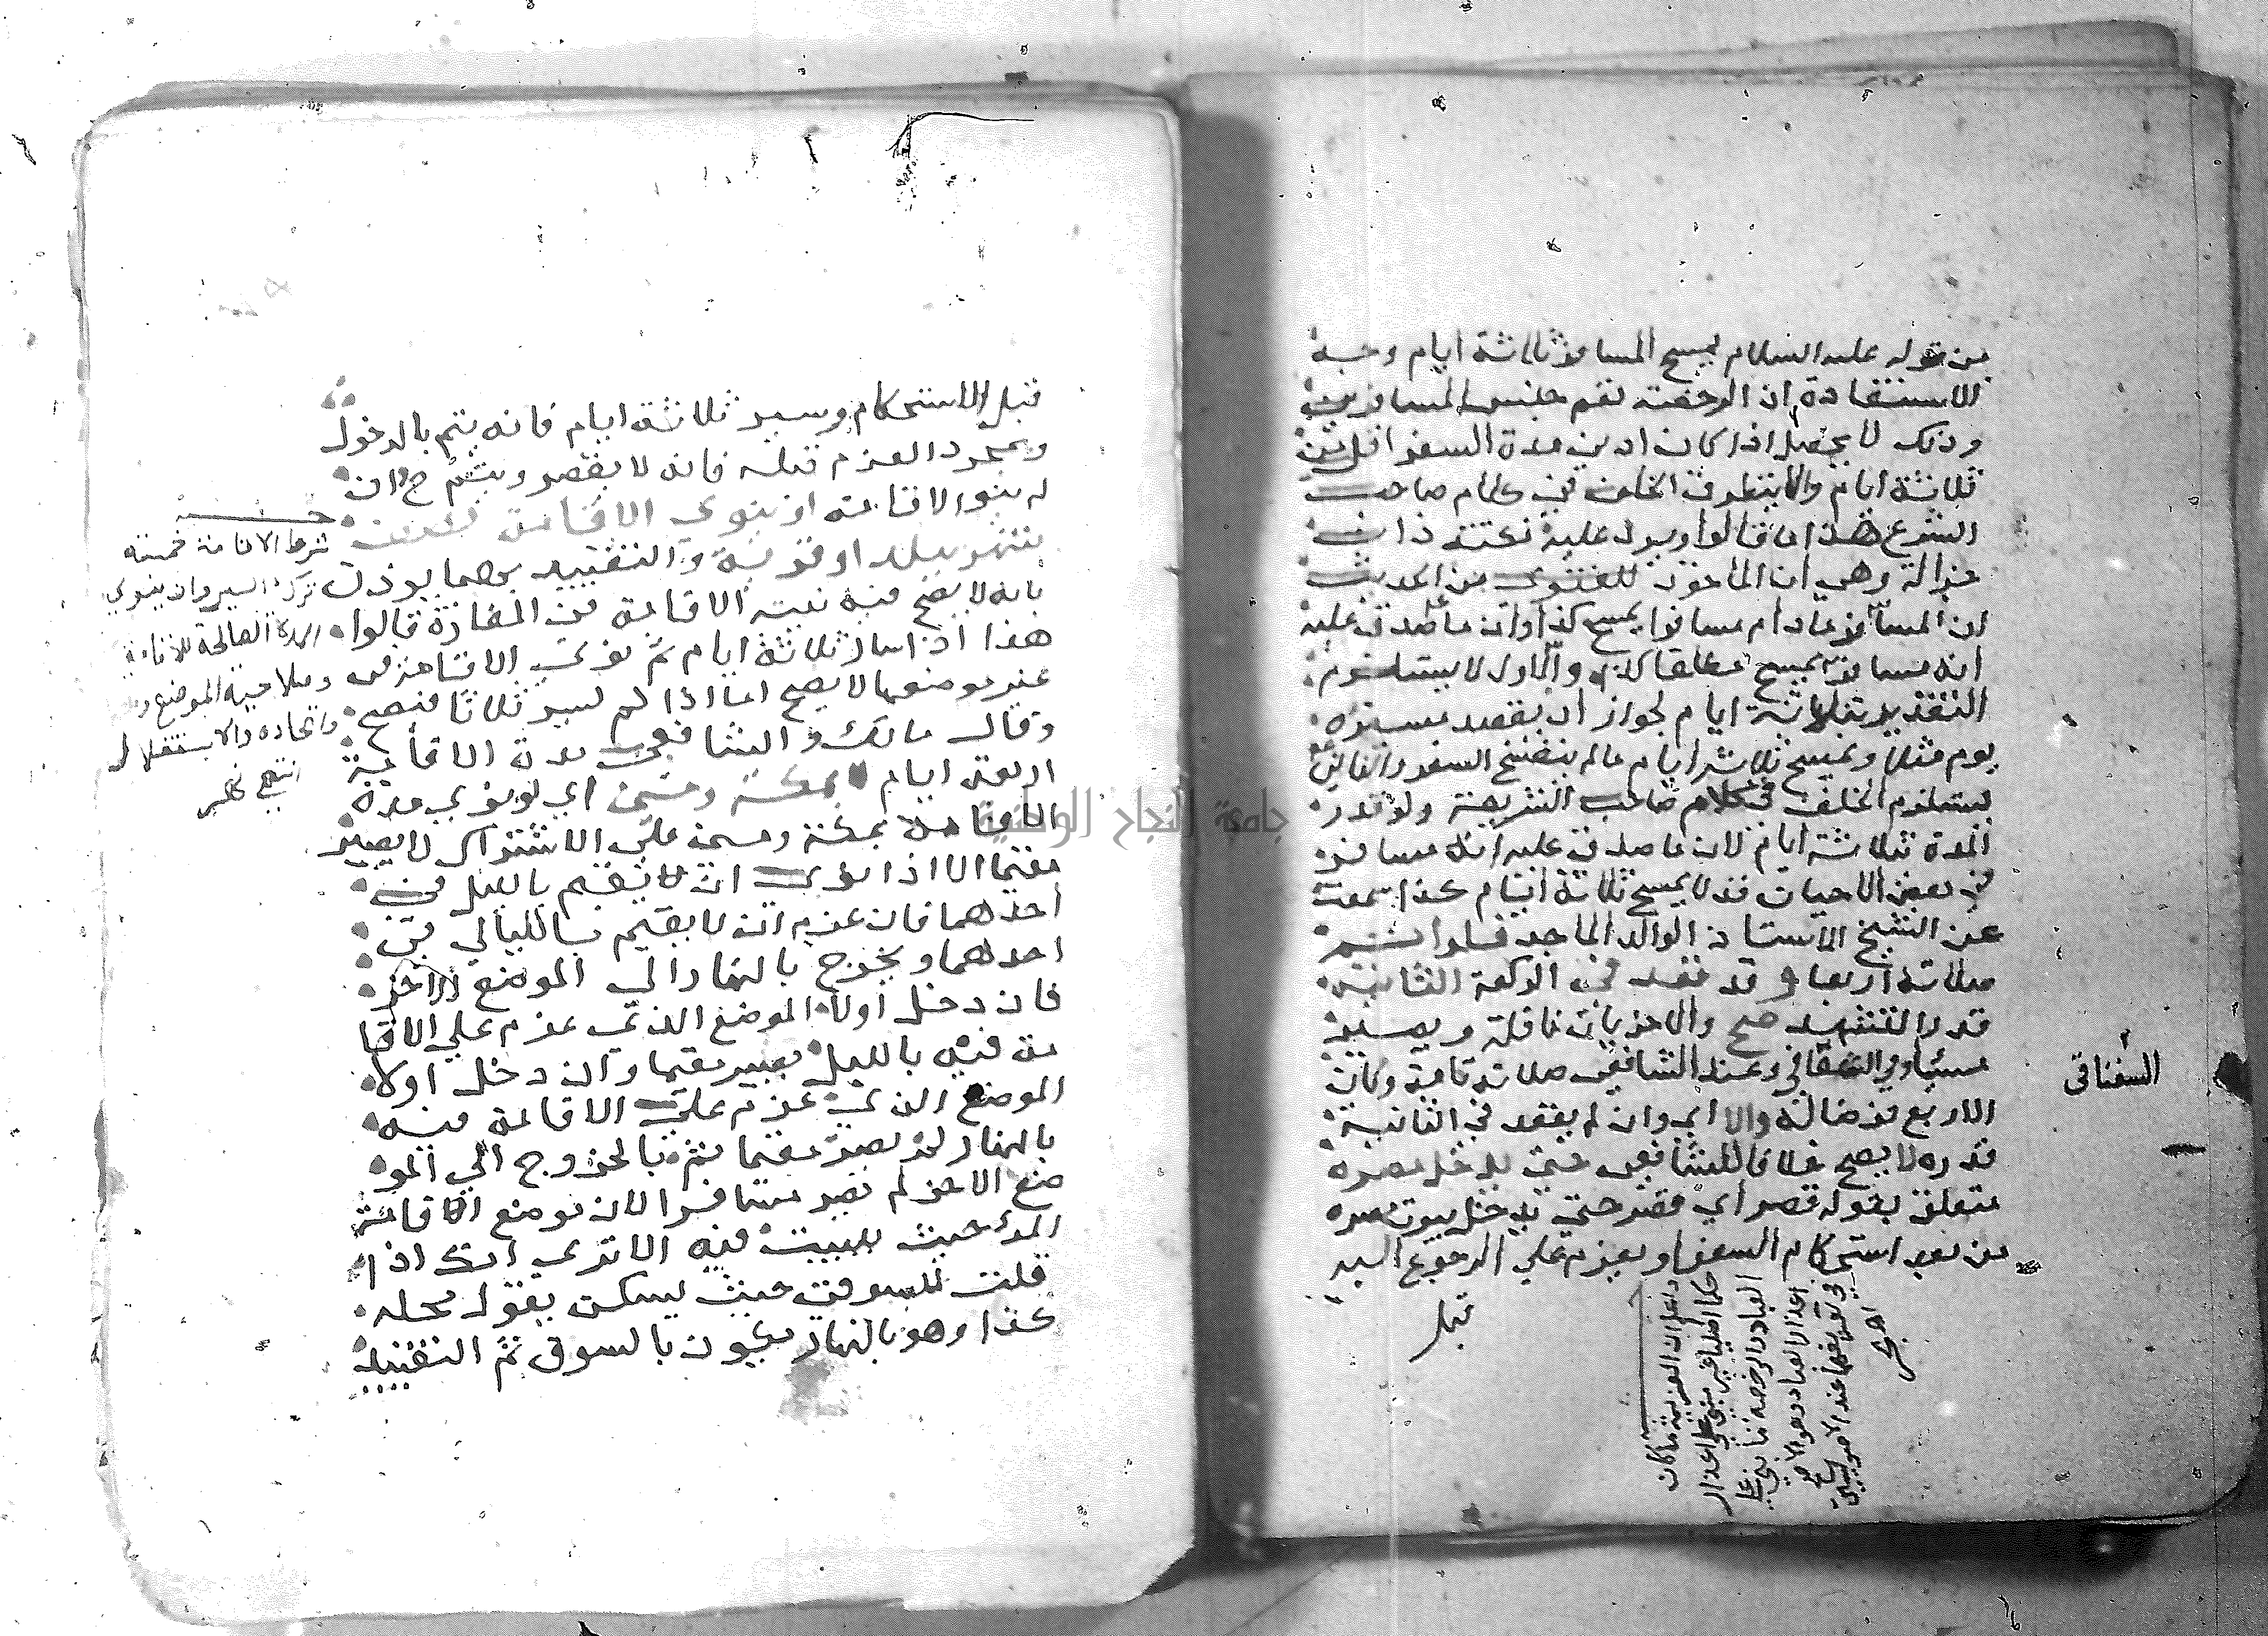 من قوله عليه السلام يمسح المسافر ثلاثة ايام وجه
الاستفادة ان الرخصة تعم جنس المسافرين
وذلك لا يحصل اذا كان ادنى مدة السفر اقل من
ثلاثة ايام والا يتطرق الخلف في كلام صاحب
الشرع هذا ما قالوا ويرد عليه نكتة ذات
جزالة وهي ان الماخوذ للفتوى من الحديث
ان المسافر مادام مسافرا يمسح كذا وان ما صدق عليه
انه مسافر يمسح مطلقا كذا والاول لا يستلزم
التقدير بثلاثة ايام لجواز ان يقصد مسيرة
يوم مثلا ويمسح ثلاثة ايام مالم ينفسخ السفر والثاني
يستلزم الخلف في كلام صاحب الشريعة ولو قدر
المدة بثلاثة ايام لان ما صدق عليه انه مسافر
في بعض الاحيان قد لا يمسح ثلاثة ايام كذا سمعت
عن الشيخ الاستاذ الوالد الماجد فلو اتم
صلاته اربعا و قد قعد في الركعة الثانية
قدر التشهد صح والاخريان نافلة ويصير
مسيئا وعند الشافعي صلاته تامة وكان
الاربع فرضا له والا اي وان لم يقعد في الثانية
قدره لا يصح خلافا للشافعي حتى يدخل مصره
متعلق بقوله قصر اي قصر حتى يدخل بيوت مصره
من بعد استحكام السفر او يعزم على الرجوع اليه
قبل
السغناقي
واعلم ان العزيمة ما كان
حكما اصليا غير مبني على اعذار
العباد والرخصة ما بني على
اعذار العباد وهو الاصح
في تعريفهما عند الاصوليين
قبل الاستحكام وسير ثلاثة ايام فانه يتم بالدخول
وبمجرد العزم قبله فانه لا يقصر ويتم ح وان
لم ينو الاقامة او ينوي الاقامة نصف
شهر ببلد او قرية والتقييد بهما يوذن
بانه لا يصح فيه نية الاقامة في المفازة قالوا
هذا اذا سار ثلاثة ايام ثم نوى الاقامة في
غير موضعها لا يصح اما اذا لم يسر ثلاثا فتصح
وقال مالك والشافعي مدة الاقامة
اربعة ايام لا بمكة ومنى اي لو نوى مدة
الاقامة بمكة ومنى على الاشتراك لا يصير
مقيما الا اذا نوى ان يقيم بالليل في
احدهما فان عزم ان يقيم بالليالي في
احدهما ويخرج بالنهار الى الموضع الاخر
فان دخل اولا الموضع الذي عزم على الاقا
مة فيه بالليل يصير مقيما وان دخل اولا
الموضع الذي عزم على الاقامة فيه
بالنهار لم يصر مقيما ثم بالخروج الى المو
ضع الاخر لم يصر مسافرا لان موضع اقامة
المرء حيث يبيت فيه الا ترى انك اذا
قلت للسوقي حيث يسكن يقول محله
كذا وهو بالنهار يكون بالسوق ثم التقييد
شرط الاقامة خمسة
ترك السير وان ينوي
المدة الصالحة للاقامة
وصلاحية الموضع
واتحاده والاستقلال
انتهى
جامعة النجاح الوطنية